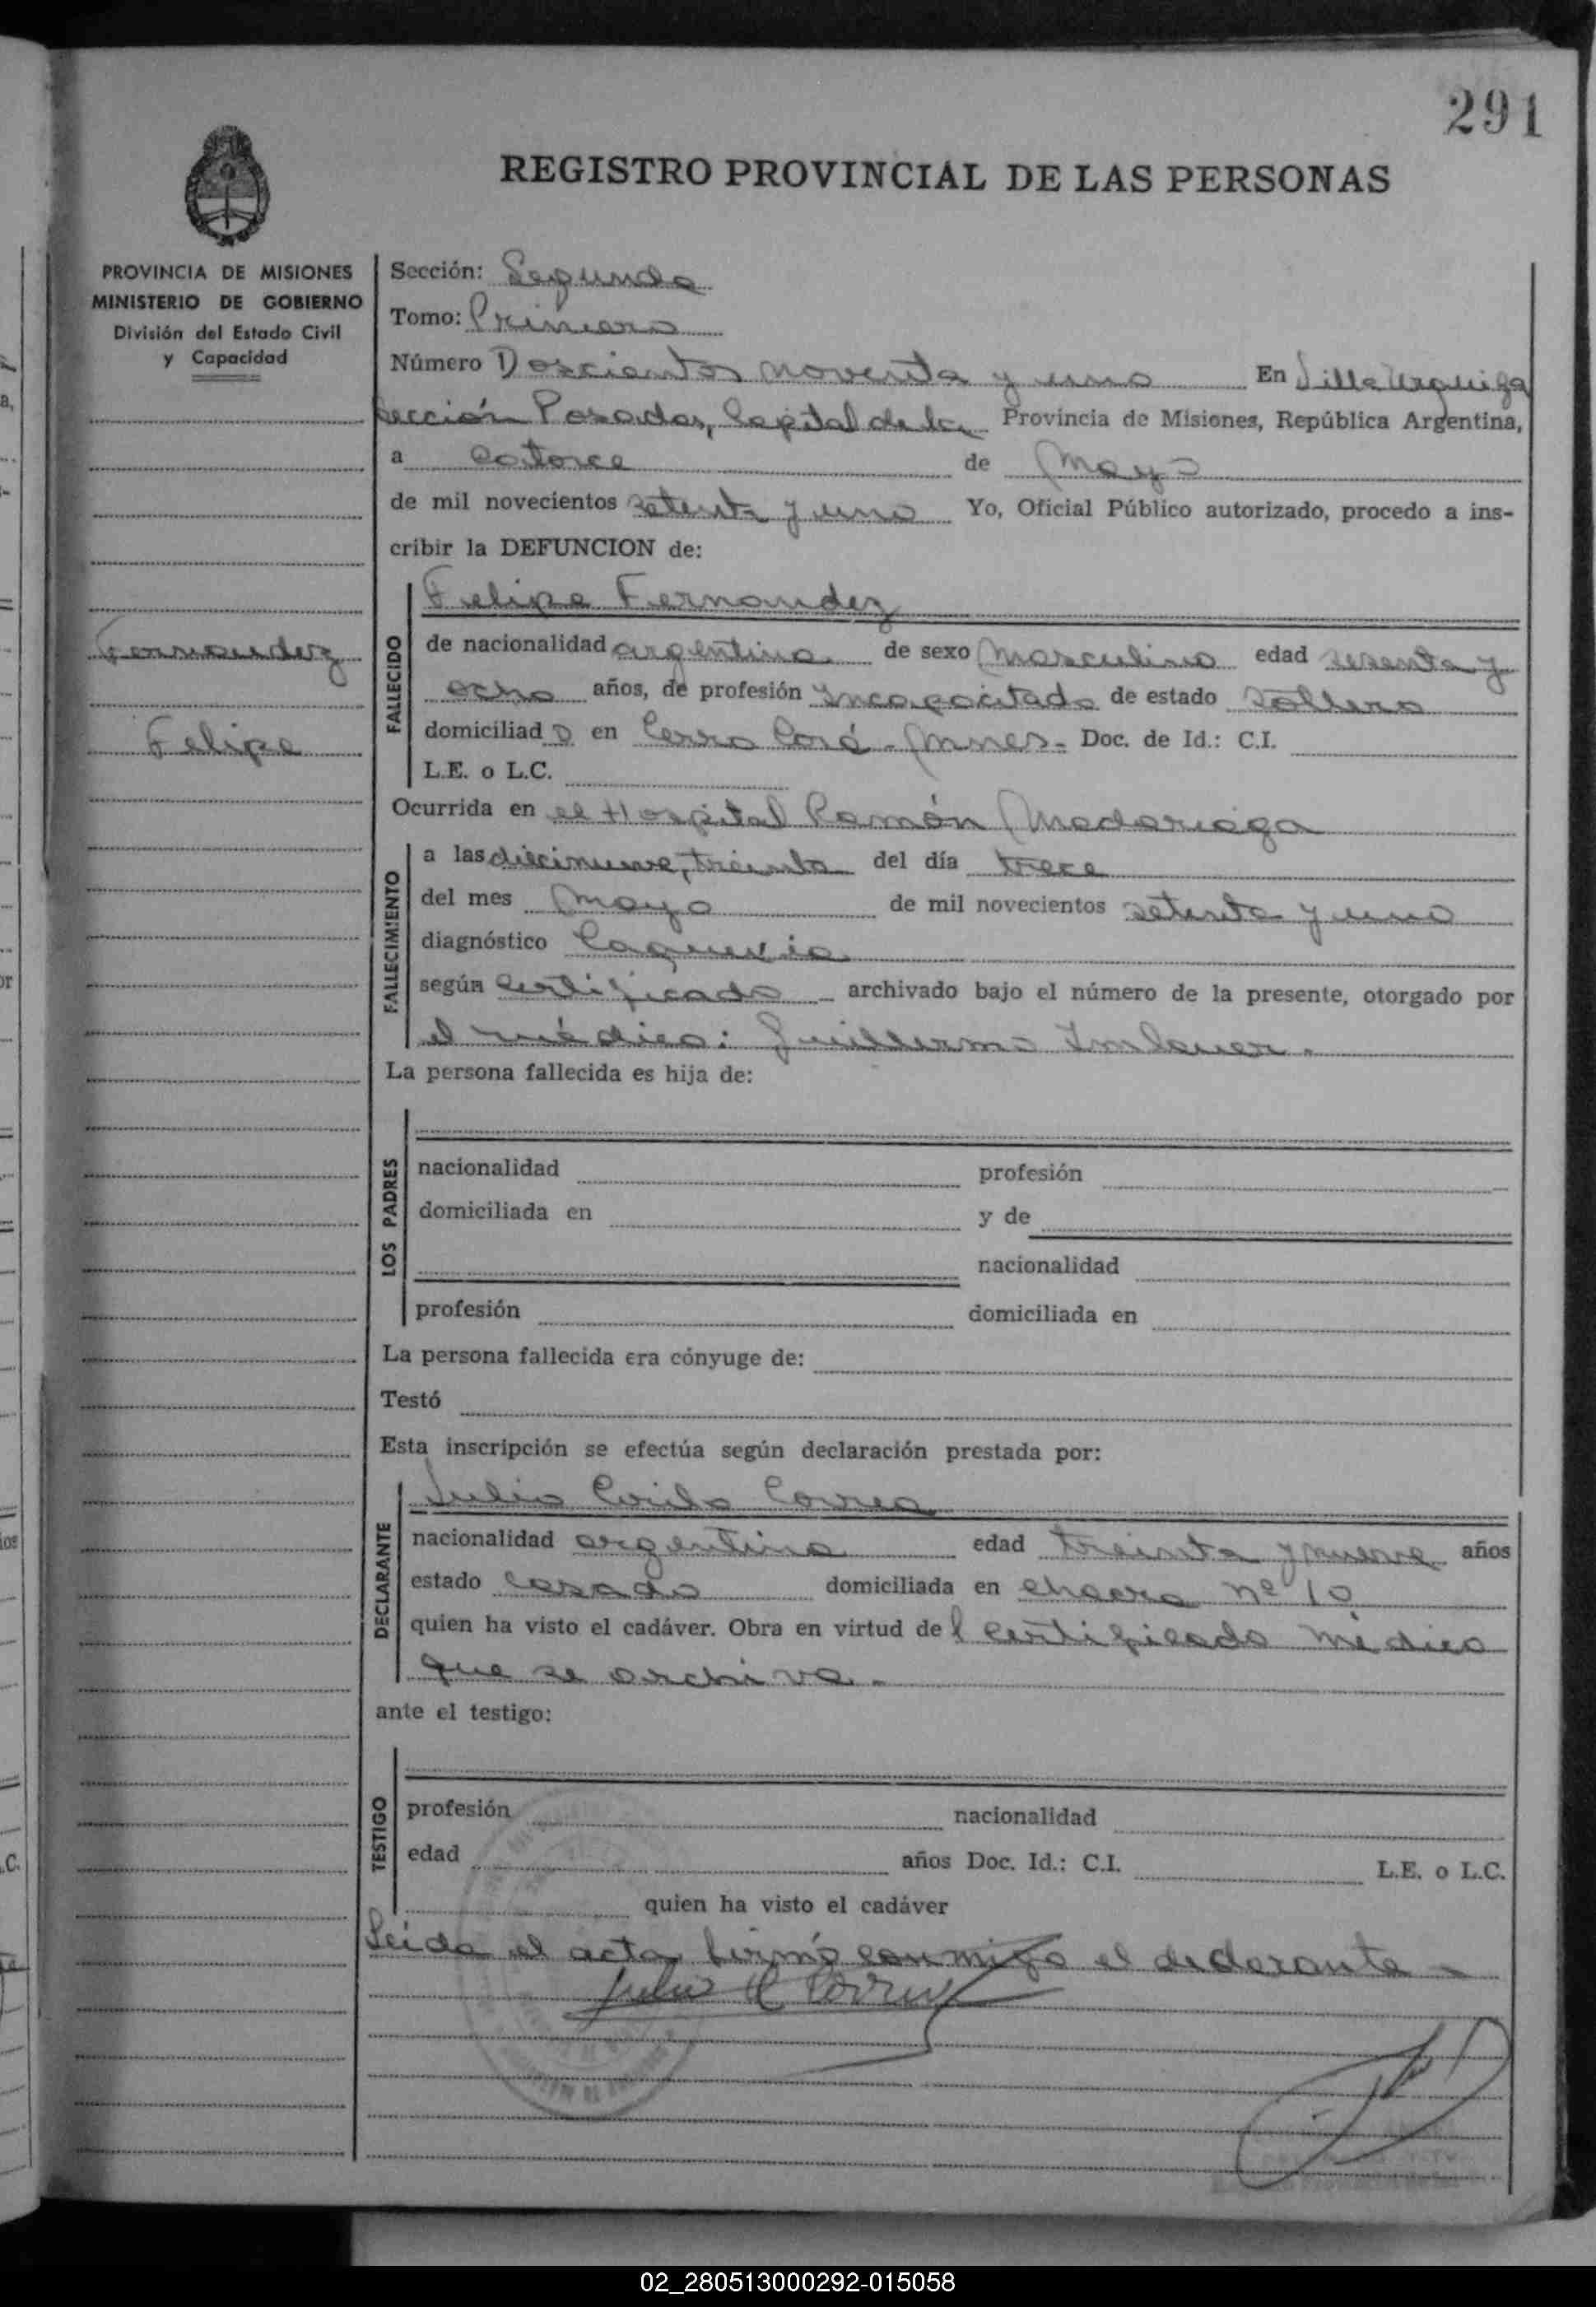 291
REGISTRO PROVINCIAL DE LAS PERSONAS
PROVINCIA DE MISIONES
MINISTERIO DE GOBIERNO
División del Estado Civil
y Capacidad
Sección: Segunda
Tomo: Primero
Número Doscientos noventa y uno En Villa Urquiza
sección Posadas, Capital de la Provincia de Misiones, República Argentina,
a catorce de Mayo
de mil novecientos setenta y uno Yo, Oficial Público autorizado, procedo a ins-
cribir la DEFUNCION de:
Felipe Fernandez
Fernandez
Felipe
FALLECIDO
de nacionalidad argentina de sexo masculino edad sesenta y
ocho años, de profesión incapacitado de estado soltero
domiciliado en Cerro Corá - Mnes- Doc. de Id.: C.I.
L.E. o L.C.
Ocurrida en el Hospital Ramón Madariaga
FALLECIMIENTO
a las diecinueve, treinta del día trece
del mes Mayo de mil novecientos setenta y uno
diagnóstico Caquexia
según certificado - archivado bajo el número de la presente, otorgado por
el médico: Guillermo
La persona fallecida es hija de:
LOS PADRES
nacionalidad profesión
domiciliada en y de
nacionalidad
profesión domiciliada en
La persona fallecida era cónyuge de:
Testó
Esta inscripción se efectúa según declaración prestada por:
DECLARANTE
Julio Correa
nacionalidad argentina edad treinta y nueve años
estado casado domiciliada en chacra nº 10
quien ha visto el cadáver. Obra en virtud del certificado médico
que se archiva.-
ante el testigo:
TESTIGO
profesión nacionalidad
edad años Doc. Id.: C.I. L.E. o L.C.
quien ha visto el cadáver
Leida el acta firmó conmigo el declarante -
Julio C Correa
02_280513000292-015058